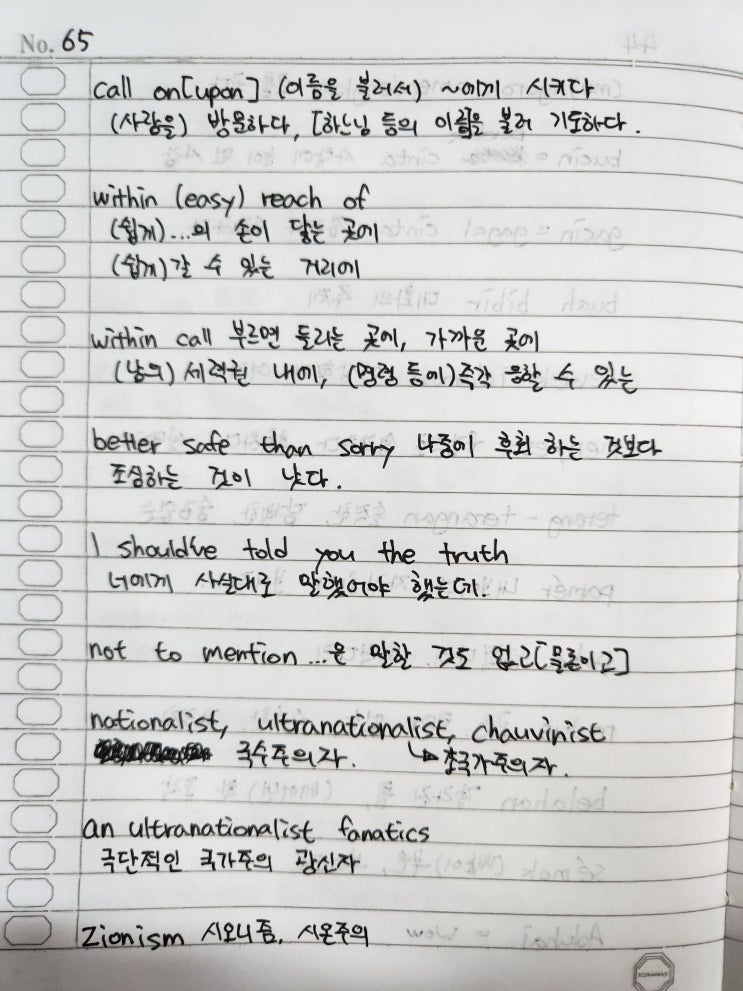 No. 65
call on[upon] (이름을 불러서) ~에게 시키다
(사람을) 방문하다, [하느님 등의 이름을 불러 기도하다.
within (easy) reach of
(쉽게)...의 손이 닿는 곳에
(쉽게)갈 수 있는 거리에
within call 부르면 들리는 곳에, 가까운 곳에
(남의) 세력권 내에, (명령 등에)즉각 응할 수 있는
better safe than sorry 나중이 후회 하는 것보다
조심하는 것이 낫다.
I should've told you the truth
너에게 사실대로 말했어야 했는데.
not to mention ...은 말할 것도 없고[물론이고]
nationalist, ultranationalist, chauvinist
국수주의자. ↳ 초국가주의자.
an ultranationalist fanatics
극단적인 국가주의 광신자
Zionism 시오니즘, 시온주의